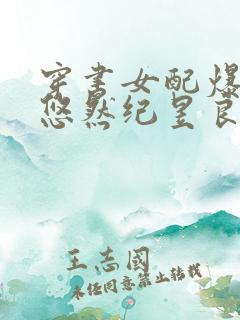 穿书女配爆
悠然纪星良
王志國
未经同意禁止转载